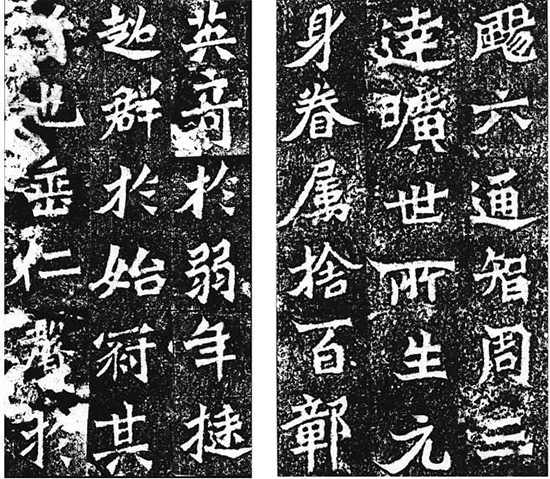 颺六通智周三
達曠世所生元
身眷属捨百鄣
英奇於弱年捷
超群於始冠其
也垂仁聲於